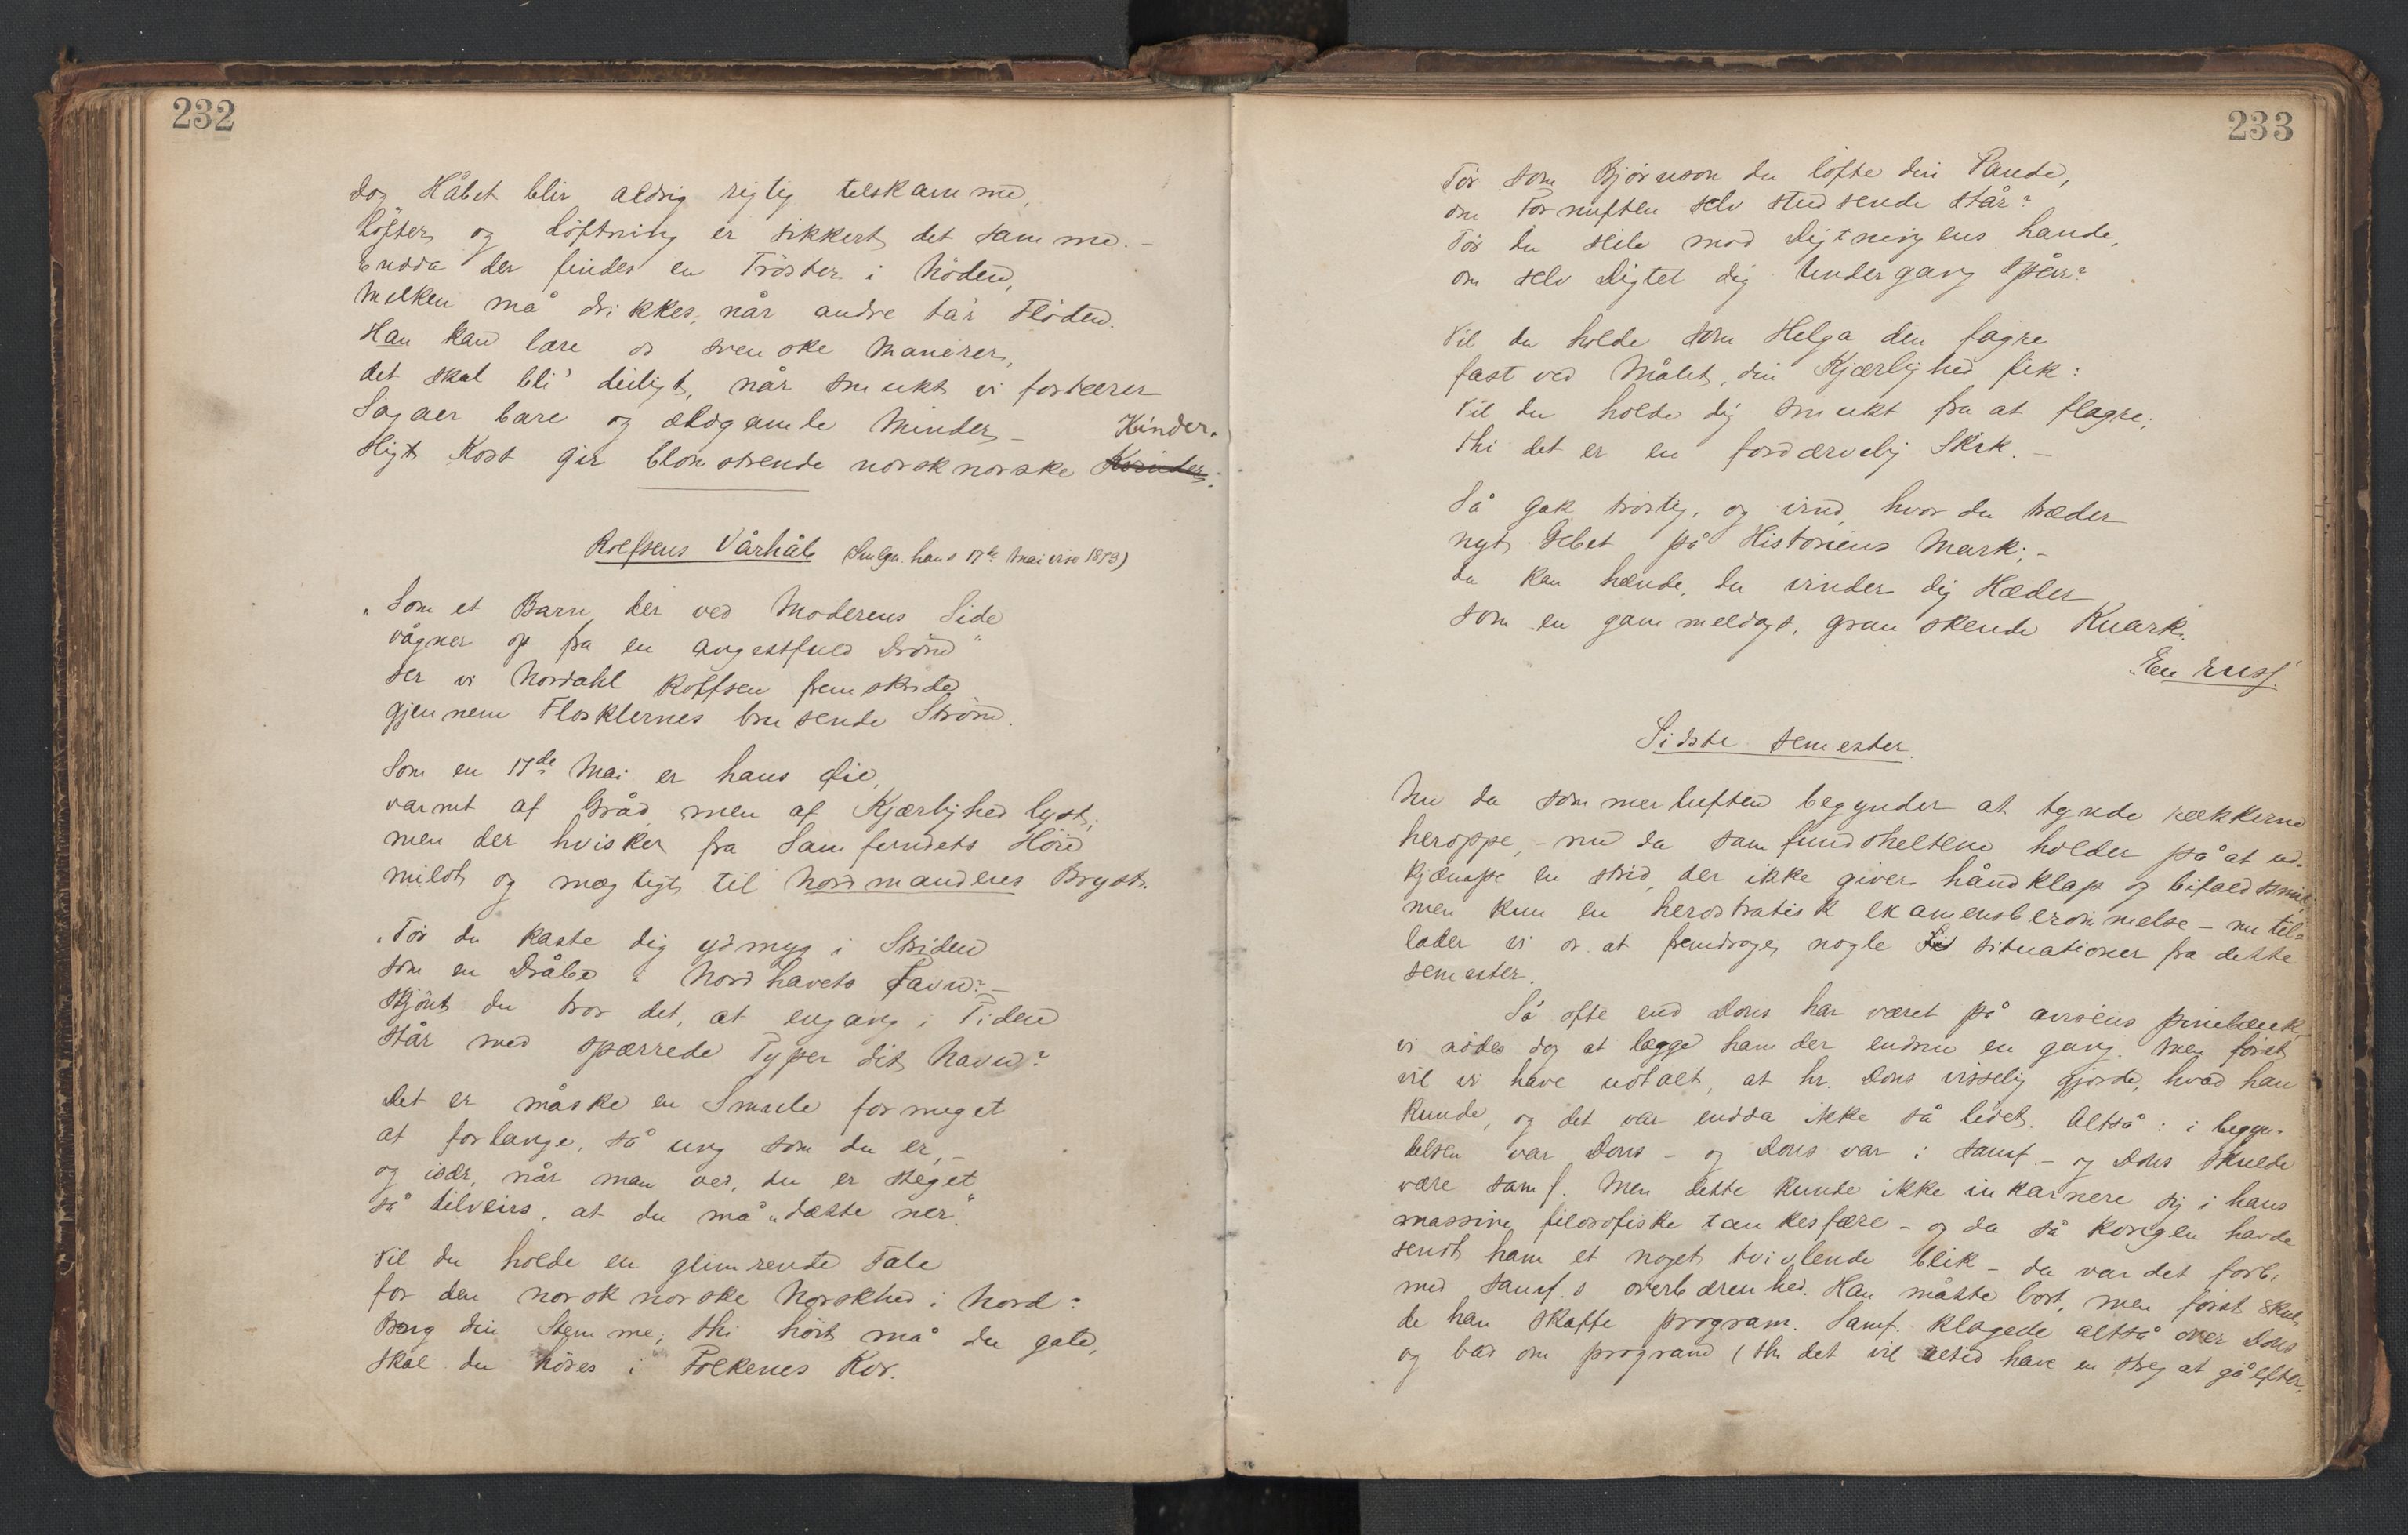 232
Dog Håbet blir aldrig rigtig tilskamme,
Löfter og Löftning er sikkert det samme. –
Endda der findes en Tröster i Nöden,
Melken må drikkes, når andre ta'r Flöden.
Han kan lære os svenske Manerer,
det skal bli' deiligt, når smukt vi fortærer
Sagaer bare og ældgamle Minder –
Kinder.
Sligt Kost gir blomstrende norsknorske Kvinder.
Rolfsens Vårhåb (Smlgn. hans 17de Mai vise 1873)
"Som et Barn, der ved Moderens Side
vågner op fra en angestfuld Dröm"
ser vi Nordahl Rolfsen fremskride
gjennem Flosklernes brusende Ström.
Som en 17de Mai er hans Øie,
varmt af Gråd, men af Kjærlighed lyst;
men der hvisker fra Samfundets Höie
mildt og mægtigt til Nordmandens Bryst.
"Tör du kaste dig ydmyg i Striden
som en Dråbe i Nordhavets Favn? –
skjönt du tror det, at engang i Tiden
står med spærrede Typer dit Navn?
Det er måske en Smule formeget
at forlange, så ung som du er, –
og især, når man ved, du er steget
så tilveirs, at du må "dætte ner".
Vil du holde en glimrende Tale
for den norsknorske Norskhed i Nord:
Brug din Stemme; thi höit må du gale,
skal du höres i Folkenes Kor.
233
Tör som Bjørnson du löfte din Pande,
om Fornuften selv studsende står?
Tör du stile mod Digtningens Lande,
om selv Digtet dig Undergang spår?
Vil du holde som Helga den fagre
fast ved Målet, din Kjærlighed fik:
Vil du holde dig smukt fra at flagre;
thi det er en fordærvelig Skik. –
Så gak tröstig, og vind, hvor du træder
nyt Gebet på Historiens Mark; –
da kan hænde, du vinder dig Hæder
som en gammeldags, granskende Knark.
"En russ".
Sidste semester.
Nu da sommerluften begynder at tynde rækkerne
heroppe, – nu da samfundsheltene holder på at ud-
kjæmpe en strid, der ikke giver håndklap og bifaldssmil,
men kun en herostratisk examensberömmelse – nu til-
lader vi os at fremdrage nogle situationer fra dette
semester.
Så ofte end Dons har været på avisens pinebænk,
vi nödes dog at lægge ham der endnu en gang. Men först
vil vi have udtalt, at hr. Dons visselig gjorde, hvad han
kunde, og det var endda ikke så lidet. Altså: i begyn-
delsen var Dons – og Dons var i samf. – og Dons skulde
være samf. Men dette kunde ikke inkarnere sig i hans
massive filosofiske tankesfære – og da så kongen havde
sendt ham et noget tvivlende blik – da var det forbi
med samf.s overbærenhed. Han måtte bort, men först skul-
de han skaffe program. Samf. klagede altså over Dons
og bad om program (thi det vil altid have en streg at gå efter,